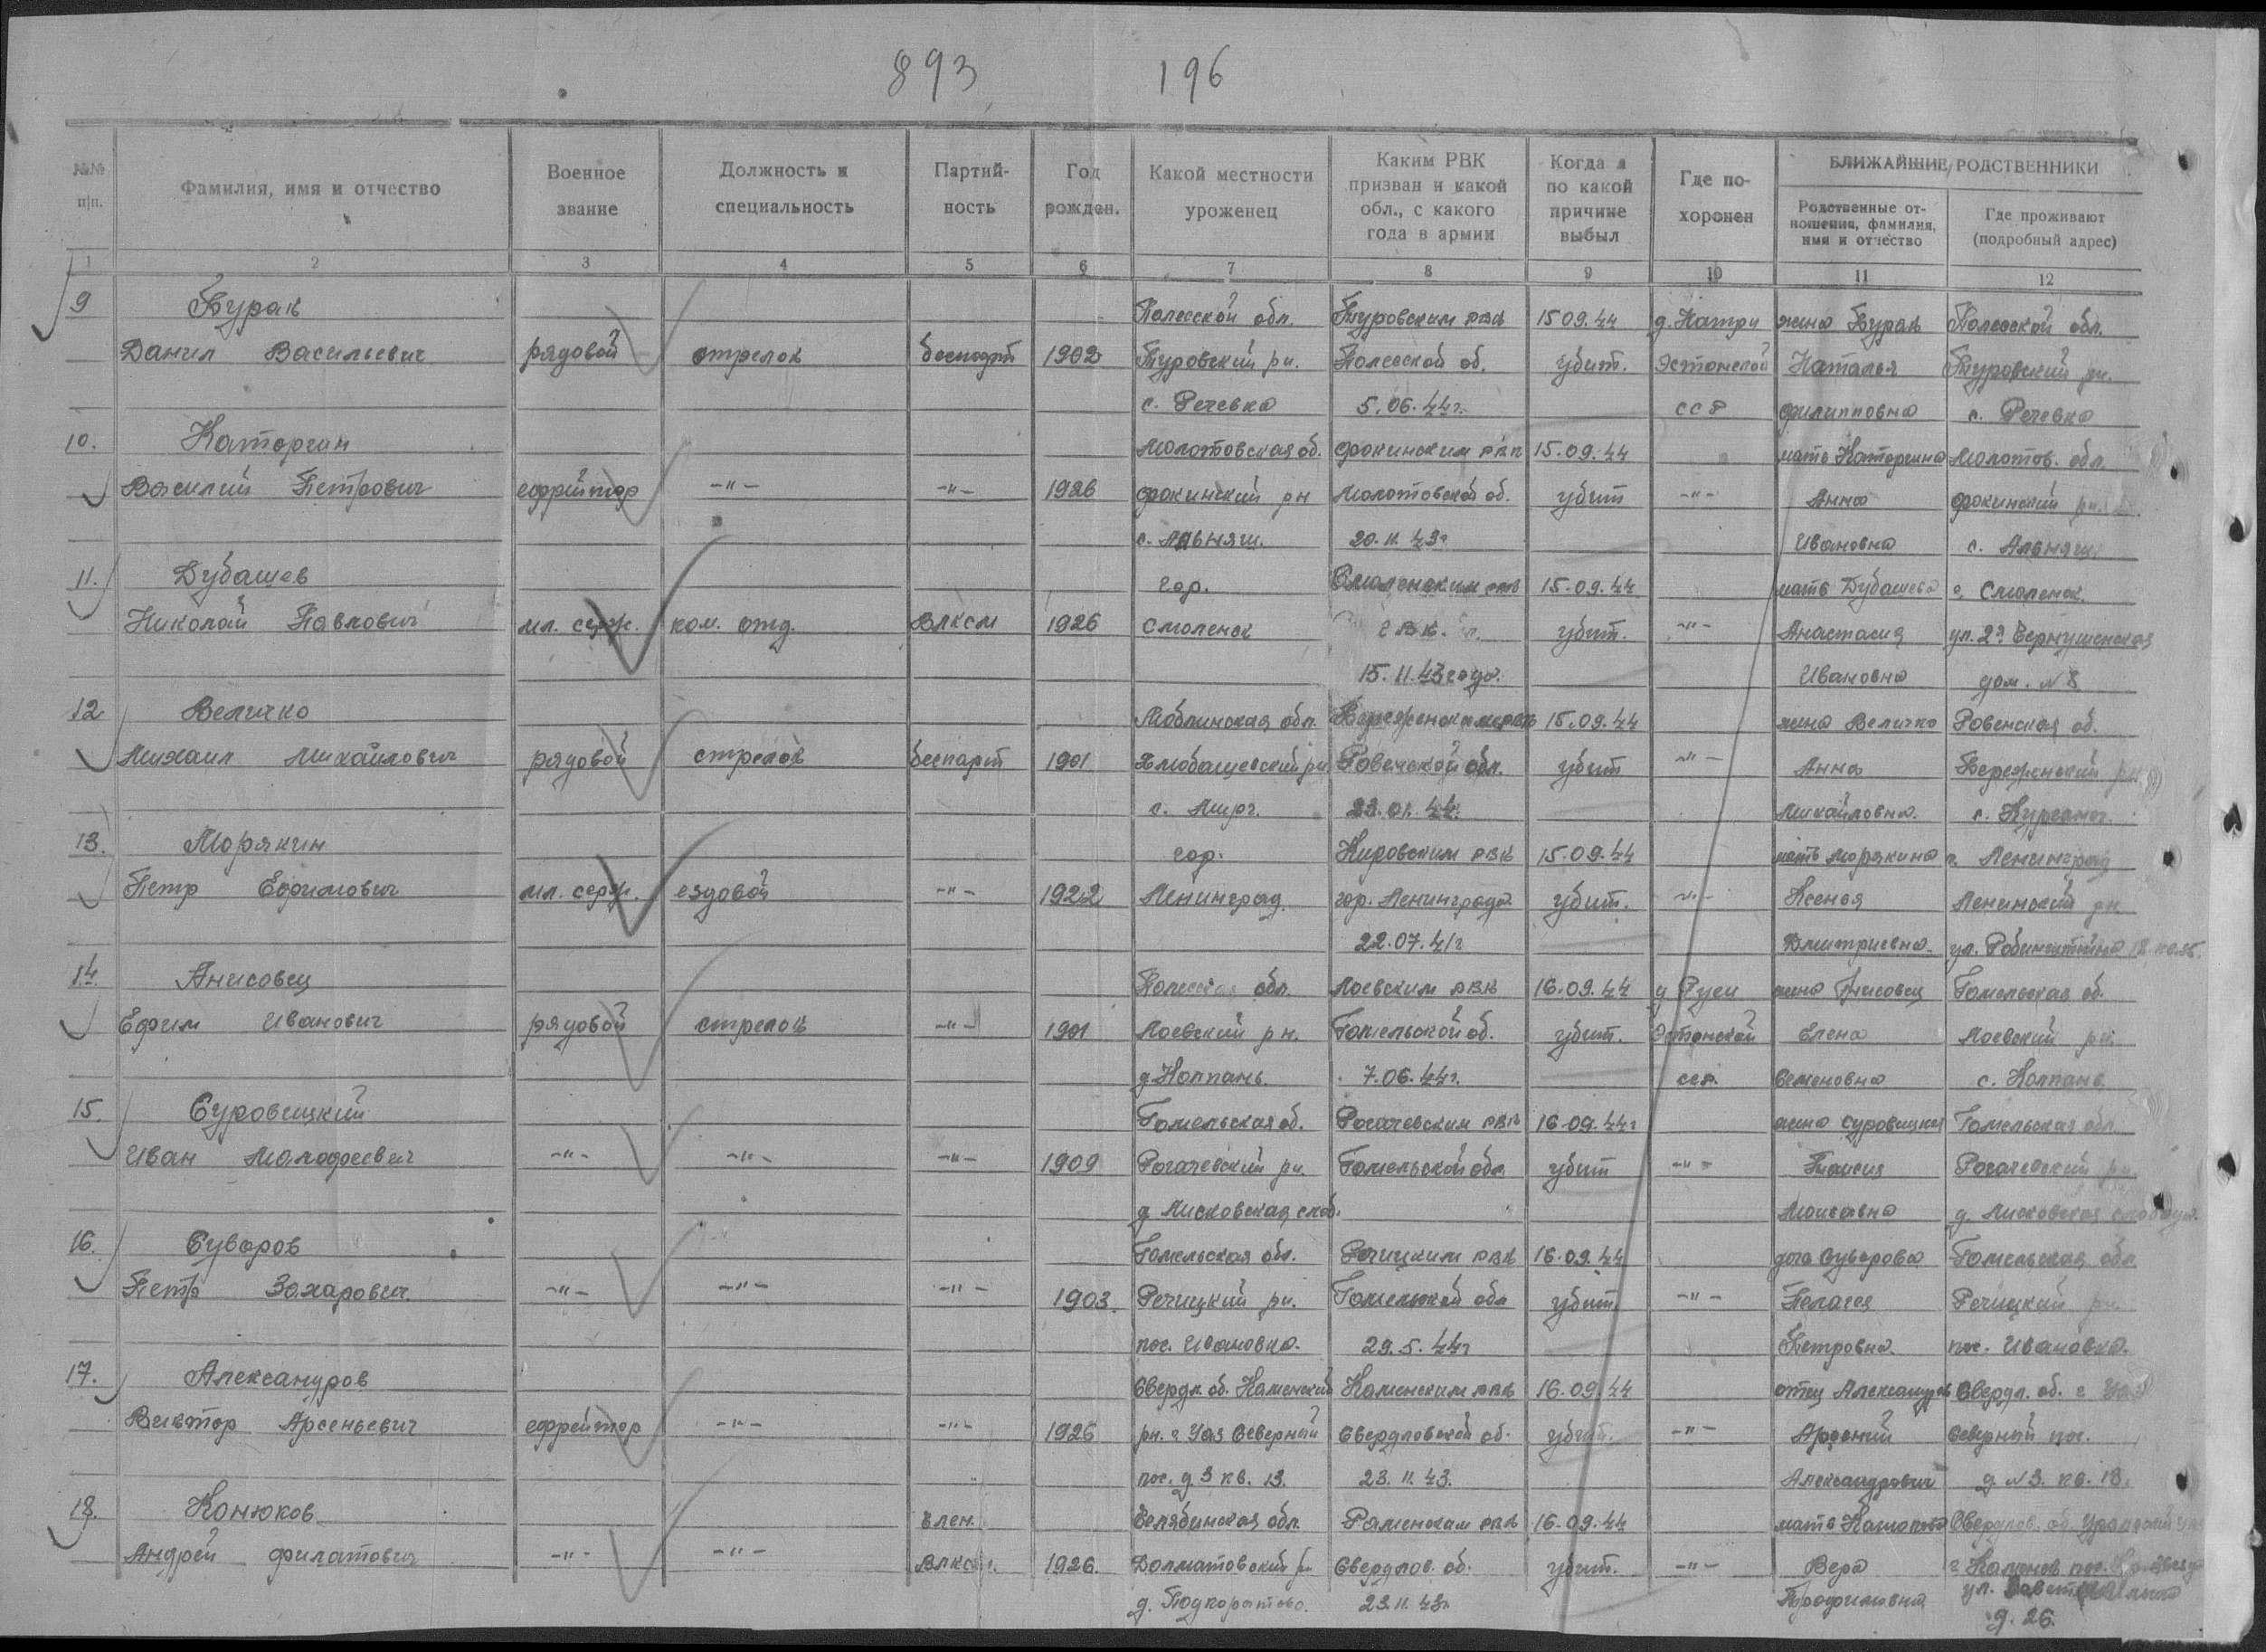 893 196
№№ п|п.
Фамилия, имя и отчество
Военное звание
Должность и специальность
Партий-ность
Год рожден.
Какой местности уроженец
Каким РВК призван и какой обл., с какого года в армии
Когда и по какой причине выбыл
Где по-хоронен
БЛИЖАЙШИЕ РОДСТВЕННИКИ
Родственные от-ношения, фамилия, имя и отчество
Где проживают (подробный адрес)
1 2 3 4 5 6 7 8 9 10 11 12
9 Бурак Полесской обл. Туровским РВК 15 09.44 д. Катри жена Бурак Полесской обл.
Данил Васильевич рядовой стрелок беспарт 1902 Туровский рн. Полесской об. убит. Эстонской Наталья Туровский рн.
с. Речевка 5.06.44г. ССР Филипповна с. Речевка
10. Каторгин Молотовская об. Фокинским РВК 15.09.44 мать Каторгина Молотов. обл.
Василий Петрович ефрейтор -"- -"- 1926 Фокинский рн Молотовской об. убит -"- Анна Фокинский рн.
с. Альняш. 20.11.43г Ивановна с. Альняш.
11. Дубашев гор. Смоленским 15.09.44 мать Дубашева г. Смоленск
Николай Павлович мл. серж. ком. отд. ВЛКСМ 1926 Смоленск убит. -"- Анастасия ул. 2я
15.11.43 года. Ивановна дом. №8
12 Величко обл. 15.09.44 жена Величко Ровенская об.
Михаил Михайлович рядовой стрелок беспарт 1901 Любашевский рн Ровенской обл. убит -"- Анна
с. 23.01.44. Михайловна. с.
13. Морякин гор. Кировским РВК 15.09.44 мать Морякина г. Ленинград
Петр Ефимович мл. серж. ездовой -"- 1922 Ленинград. гор. Ленинграда убит. -"- Ксенья Ленинский рн
22.07.41г Дмитриевна. ул.
14. Анисовец Полесская обл. Лоевским РВК 16.09.44 д Руси жена Анисовец Гомельская об.
Ефим Иванович рядовой стрелок -"- 1901 Лоевский рн. Гомельской об. убит. Эстонской Елена Лоевский рн.
д. Колпань. 7.06.44г. ССР. Семеновна с. Колпань.
15. Суровицкий Гомельская об. Рогачевским РВК 16.09.44г жена Суровицкая Гомельская обл.
Иван Малофеевич -"- -"- -"- 1909 Рогачевский рн. Гомельской обл убит -"- Таисия Рогачевский рн.
д. Лисковская слоб. Моисавна д. Лисковская слобода.
16. Суворов Гомельская обл. Речицким РВК 16.09.44 доч Суворова Гомельская обл.
Петр Захарович. -"- -"- -"- 1903. Речицкий рн. Гомельской обл убит. -"- Пелагея Речицкий рн.
пос. Ивановка. 29.5.44г Петровна пос. Ивановка.
17. Александров Свердл. об. Каменский Каменским РВК 16.09.44 отец Александров Свердл. об. г Уаз
Виктор Арсеньевич ефрейтор -"- -"- 1926 рн. г Уаз Северный Свердловской об. убит. -"- Арсений Северный пос.
пос. д. 3 кв. 13. 23.11.43. Александрович д №3. кв. 13.
18. Конюков член. Челябинская обл. РВК 16.09.44 мать Свердлов. об.
Андрей Филатович -"- -"- ВЛКСМ. 1926. Долматовский рн Свердлов. об. убит. -"- Вера
д. 23.11.43г Трофимовна ул.
д. 26.